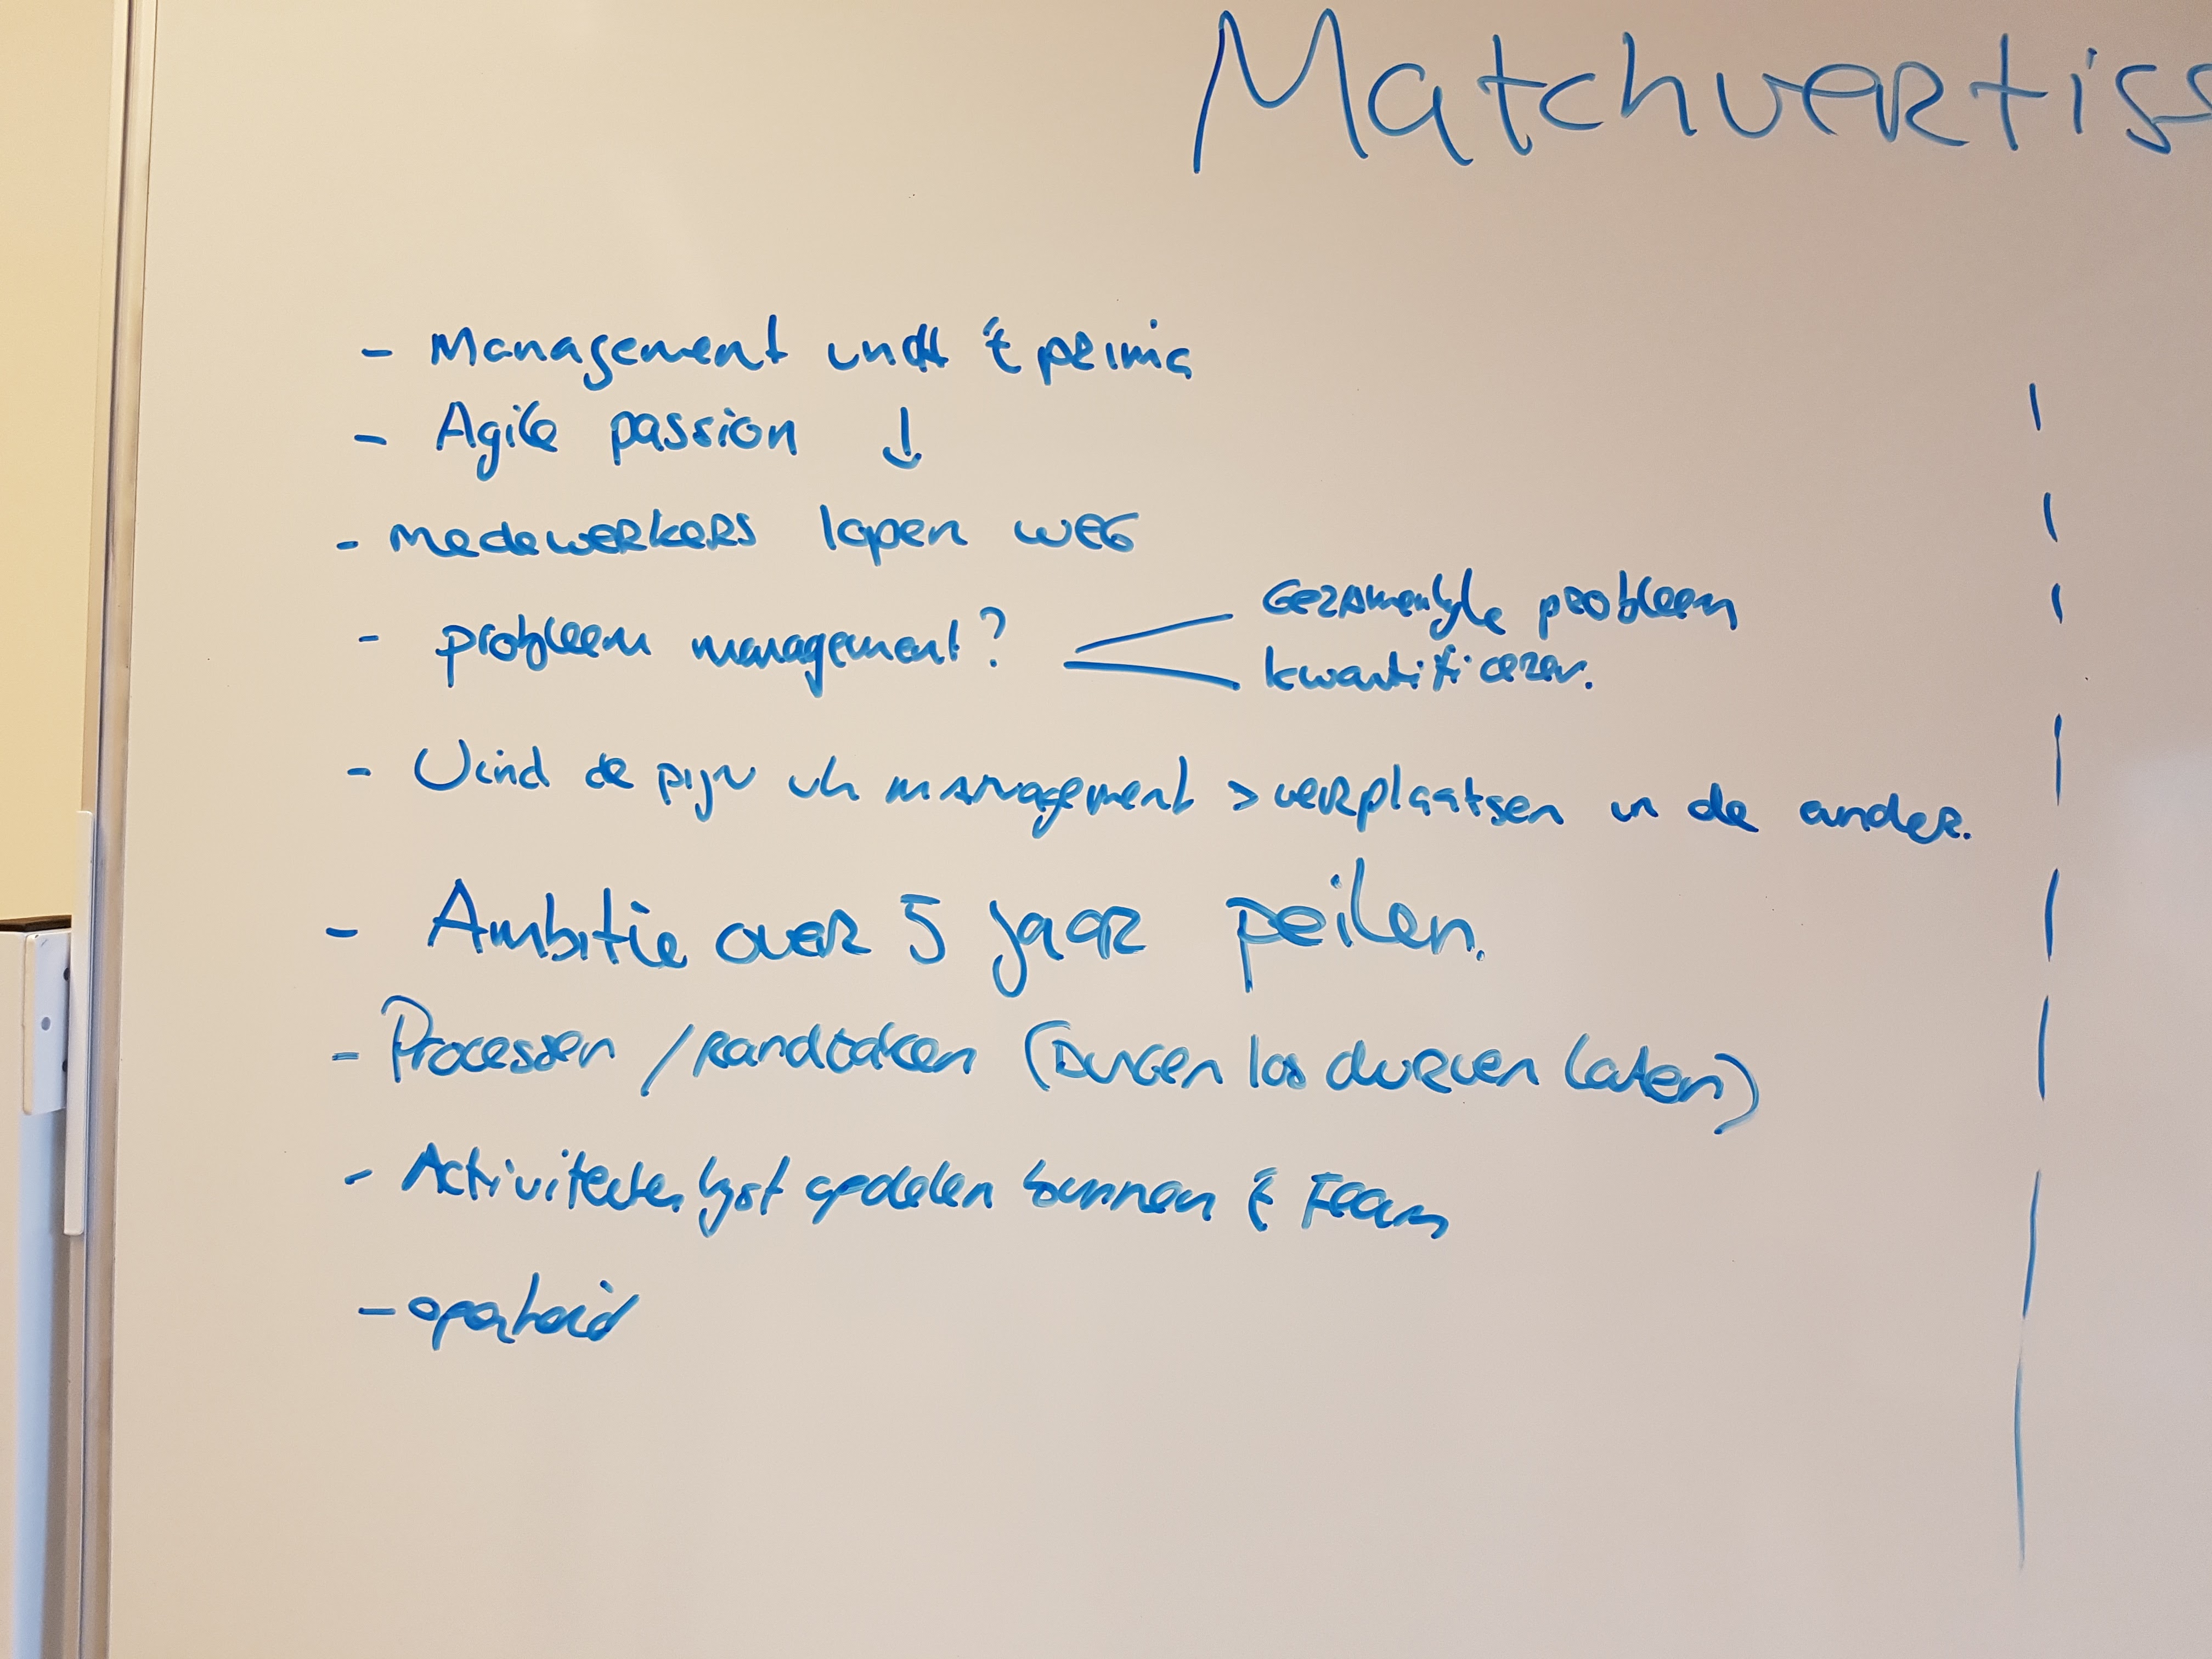 Matchvertiss
- Management vindt 't prima
- Agile passion ↓
- Medewerkers lopen weg
- probleem management?
Gezamenlyke probleem
kwantificeren.
- Vind de pyn vh management > verplaatsen in de ander.
- Ambitie over 5 jaar peilen.
- Processen / Randtaken (Durven los durven laten)
- Activiteitenlyst opdelen kunnen € Team
- openheid